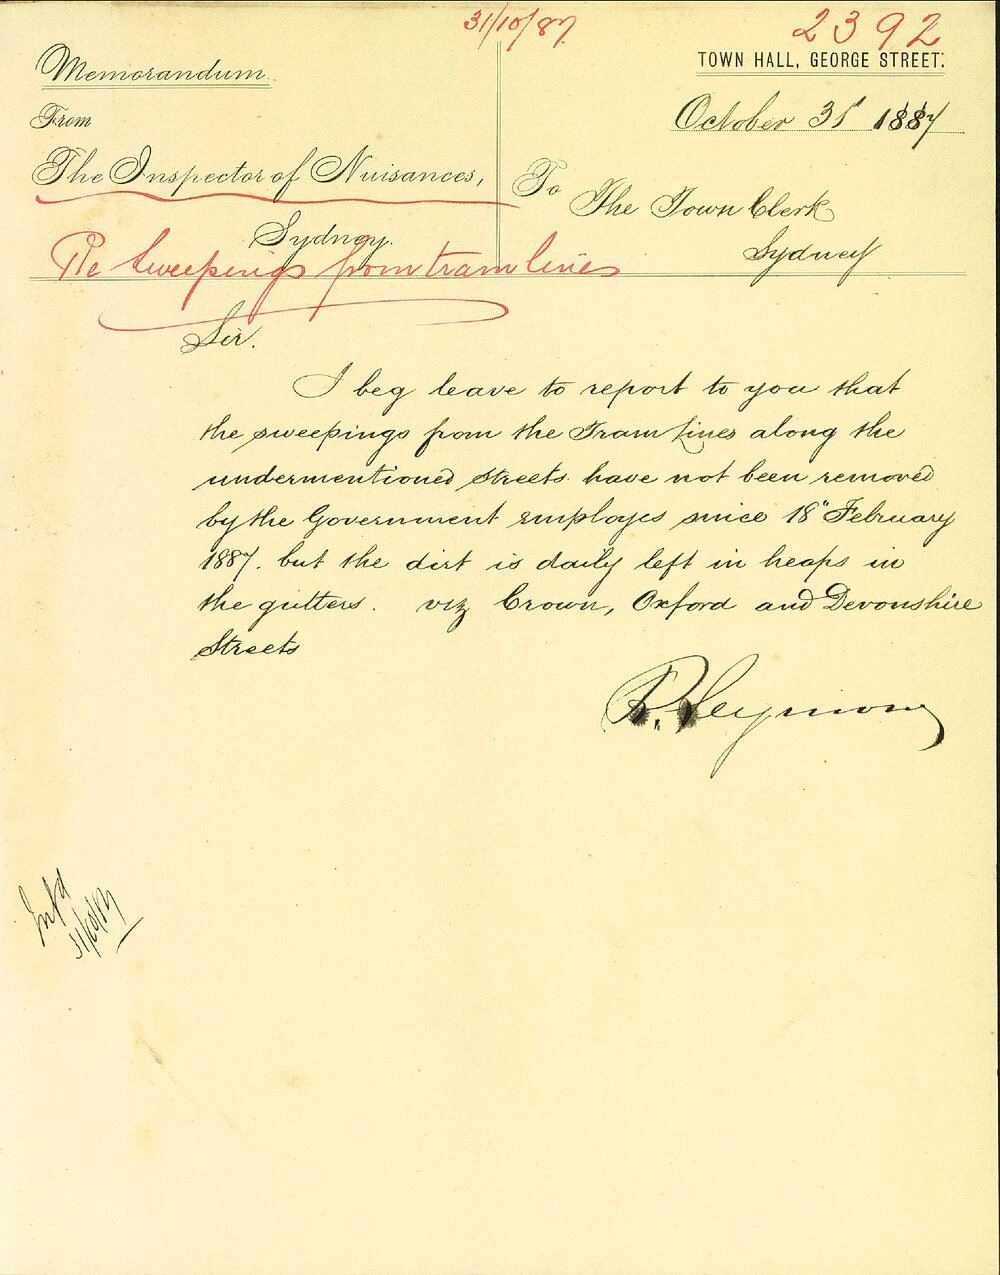 31/10/87.
2392
TOWN HALL, GEORGE STREET.
Memorandum.
From
The Inspector of Nuisances,
Sydney.
October 31st 1887
To The Town Clerk
Sydney
Re Sweepings from tram lines
Sir.
I beg leave to report to you that
the sweepings from the Tram lines along the
undermentioned Streets have not been removed
by the Government employes since 18" February
1887. but the dirt is daily left in heaps in
the gutters. viz Crown, Oxford and Devonshire
Streets
R. Seymour
31/10/87